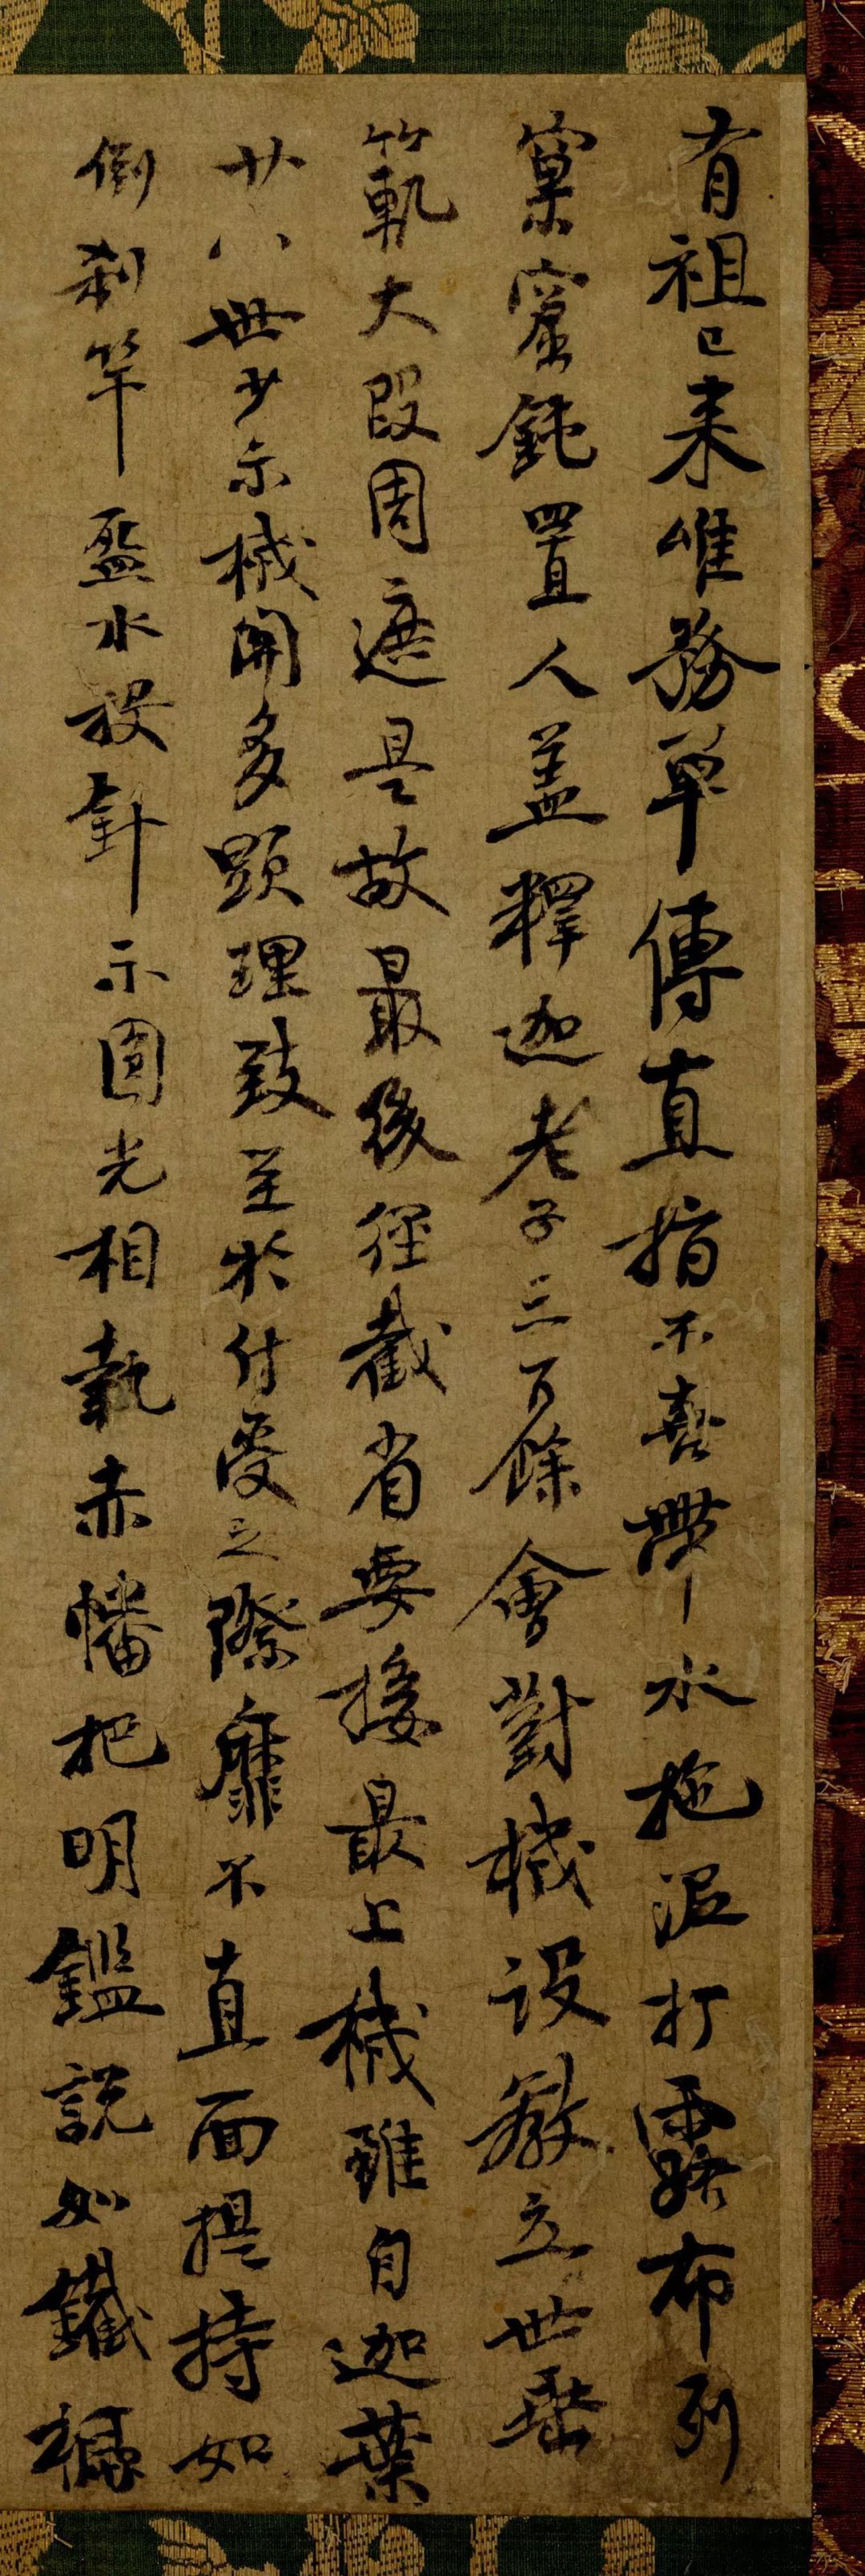 有祖已来唯務單傳直指不喜帶水拖泥打露布列
窠窟鈍置人盖釋迦老子三百餘會對機設教立世垂
範軌大段周遮是故最後徑截省要接最上機雖自迦葉
廿八世少示機関多顯理致至於付受之際靡不直面提持如
倒刹竿盌水投針示圓光相執赤幡把明鑑説如鐵橛